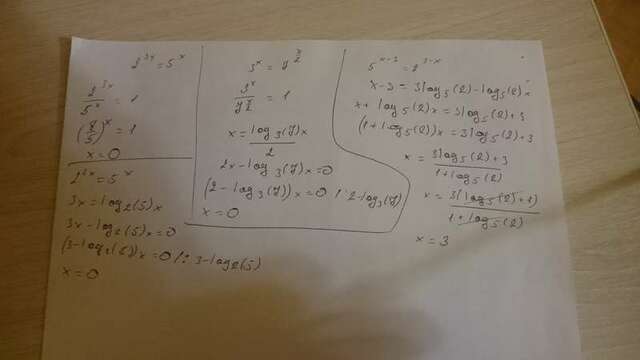 2^{3x} = 5^x
\frac{2^{3x}}{5^x} = 1
(\frac{8}{5})^x = 1
x = 0
2^{2x} = 5^x
3x = log_2(5)x
3x - log_2(5)x = 0
(3 - log_2(5))x = 0 /: 3 - log_2(5)
x = 0
3^x = 7^{\frac{x}{2}}
\frac{3^x}{7^{\frac{x}{2}}} = 1
x = \frac{log_3(7)x}{2}
2x - log_3(7)x = 0
(2 - log_3(7))x = 0 /: 2 - log_3(7)
x = 0
5^{x-3} = 2^{3-x}
x - 3 = 3log_5(2) - log_5(2)x
x + log_5(2)x = 3log_5(2) + 3
(1 + log_5(2))x = 3log_5(2) + 3
x = \frac{3log_5(2) + 3}{1 + log_5(2)}
x = \frac{3(log_5(2) + 1)}{1 + log_5(2)}
x = 3